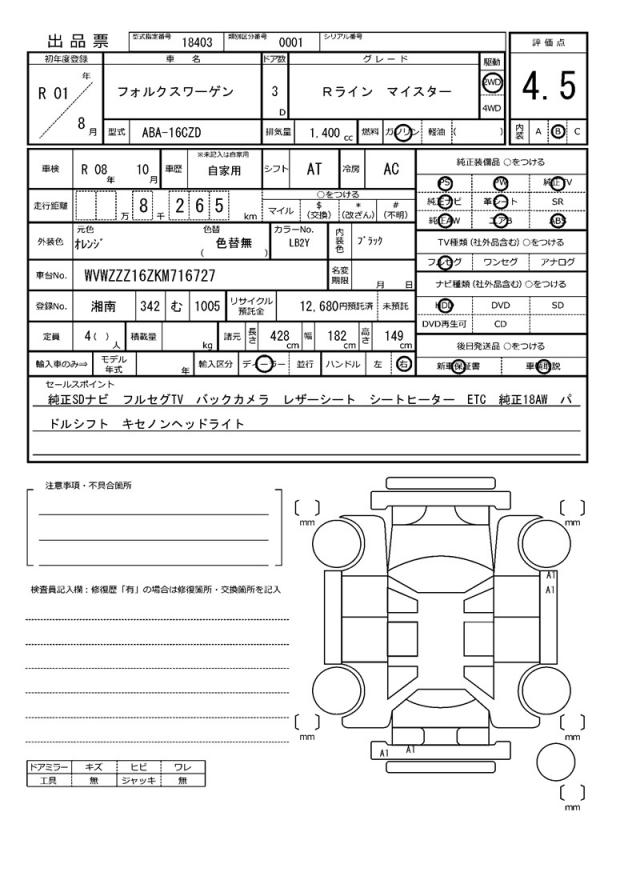 出品票 型式指定番号 18403 類別区分番号 0001 シリアル番号
初年度登録 車 名 ドア数 グレード 駆動 評価点
R 01 年 8 月 フォルクスワーゲン 3 D Rライン マイスター 2WD 4WD 4.5
型式 ABA-16CZD 排気量 1,400 cc 燃料 ガソリン 軽油 ( ) 内装 A B C
車検 R 08 年 10 月 車歴 ※未記入は自家用 自家用 シフト AT 冷房 AC 純正装備品 ○をつける
PS PW 純正TV
走行距離 万 8 千 2 6 5 km ○をつける マイル $ (交換) * (改ざん) # (不明) 純正ナビ 革シート SR
純正AW エアB ABS
外装色 元色 オレンジ 色替 ( 色替無 ) カラーNo. LB2Y 内装色 ブラック TV種類 (社外品含む) ○をつける
フルセグ ワンセグ アナログ
車台No. WVWZZZ16ZKM716727 名変期限 月 日 ナビ種類 (社外品含む) ○をつける
登録No. 湘南 342 む 1005 リサイクル預託金 12,680円預託済 未預託 HDD DVD SD
DVD再生可 CD
定員 4( ) 人 積載量 kg 諸元 長さ 428 cm 幅 182 cm 高さ 149 cm 後日発送品 ○をつける
輸入車のみ⇒ モデル年式 年 輸入区分 ディーラー 並行 ハンドル 左 右 新車保証書 車輌取説
セールスポイント
純正SDナビ フルセグTV バックカメラ レザーシート シートヒーター ETC 純正18AW パ
ドルシフト キセノンヘッドライト
注意事項・不具合箇所
mm mm
A1
A1
検査員記入欄：修復歴「有」の場合は修復箇所・交換箇所を記入
mm mm
A1 A1
ドアミラー キズ ヒビ ワレ
工具 無 ジャッキ 無
mm